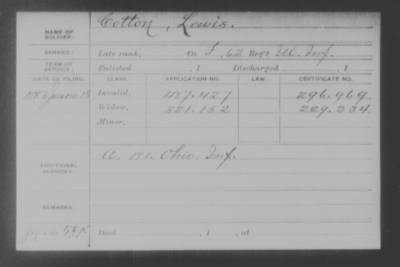 Cotton, Lewis.
NAME OF SOLDIER:
SERVICE: Late rank, Co. Reg't Inf.
TERM OF SERVICE: Enlisted , 1 Discharged , 1
DATE OF FILING. CLASS. APPLICATION NO. LAW. CERTIFICATE NO.
Invalid, 457.427 296.969
Widow, 321.152 209.334
Minor,
ADDITIONAL SERVICES: A. 191. Ohio. Inf.
REMARKS:
Died , 1 , at